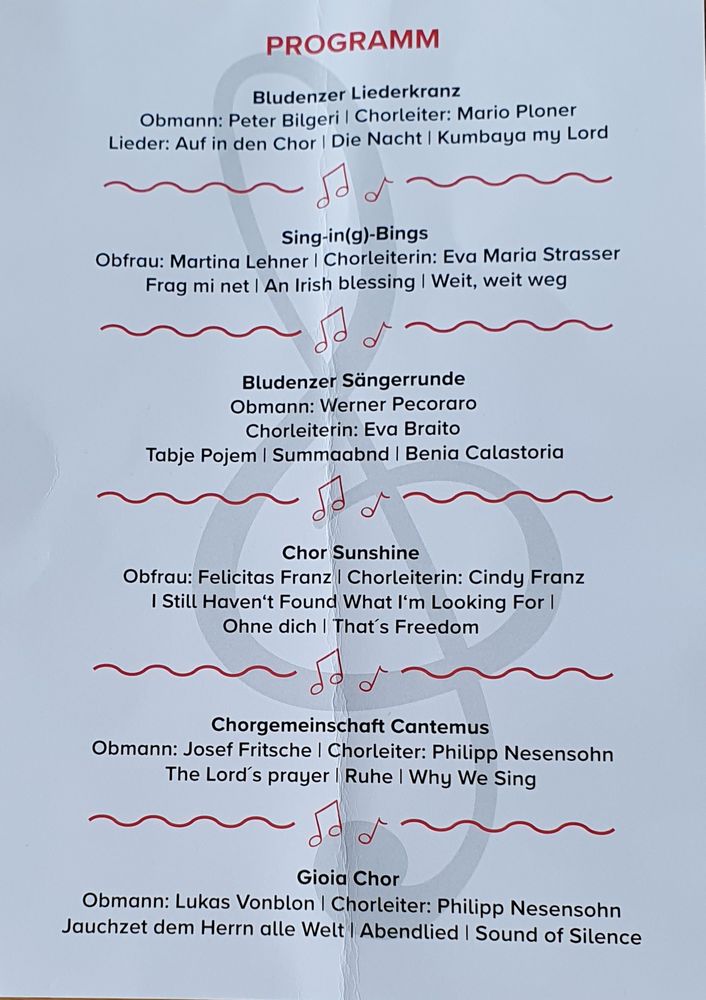 PROGRAMM
Bludenzer Liederkranz
Obmann: Peter Bilgeri | Chorleiter: Mario Ploner
Lieder: Auf in den Chor | Die Nacht | Kumbaya my Lord
Sing-in(g)-Bings
Obfrau: Martina Lehner | Chorleiterin: Eva Maria Strasser
Frag mi net | An Irish blessing | Weit, weit weg
Bludenzer Sängerrunde
Obmann: Werner Pecoraro
Chorleiterin: Eva Braito
Tabje Pojem | Summaabnd | Benia Calastoria
Chor Sunshine
Obfrau: Felicitas Franz | Chorleiterin: Cindy Franz
I Still Haven‘t Found What I‘m Looking For |
Ohne dich | That´s Freedom
Chorgemeinschaft Cantemus
Obmann: Josef Fritsche | Chorleiter: Philipp Nesensohn
The Lord´s prayer | Ruhe | Why We Sing
Gioia Chor
Obmann: Lukas Vonblon | Chorleiter: Philipp Nesensohn
Jauchzet dem Herrn alle Welt | Abendlied | Sound of Silence